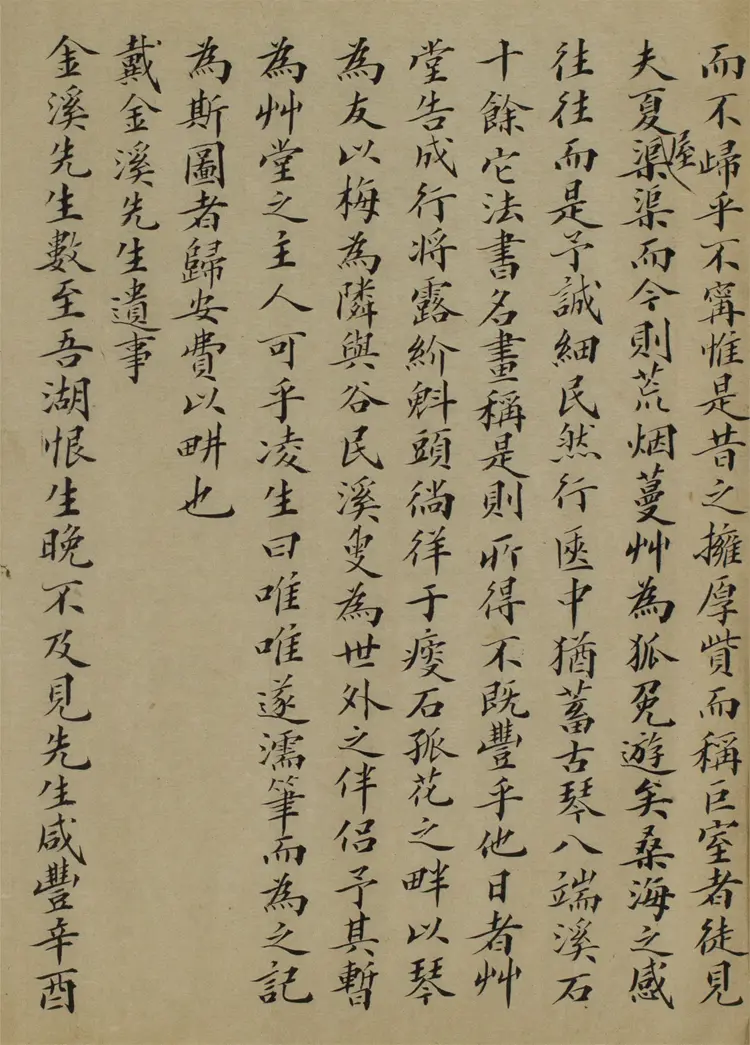 而不歸乎不寗惟是昔之擁厚貲而稱巨室者徒見
夫夏屋渠渠而今則荒烟蔓艸為狐兎遊矣桑海之感
往往而是予誠細民然行匧中猶蓄古琴八端溪石
十餘它法書名畫稱是則所得不既豐乎他日者艸
堂告成行将露紒斛頭徜徉于瘦石孤花之畔以琴
為友以梅為隣與谷民溪叟為世外之伴侣予其暫
為艸堂之主人可乎凌生曰唯唯遂濡筆而為之記
為斯圖者歸安費以畊也
戴金溪先生遺事
金溪先生數至吾湖恨生晚不及見先生咸豐辛酉